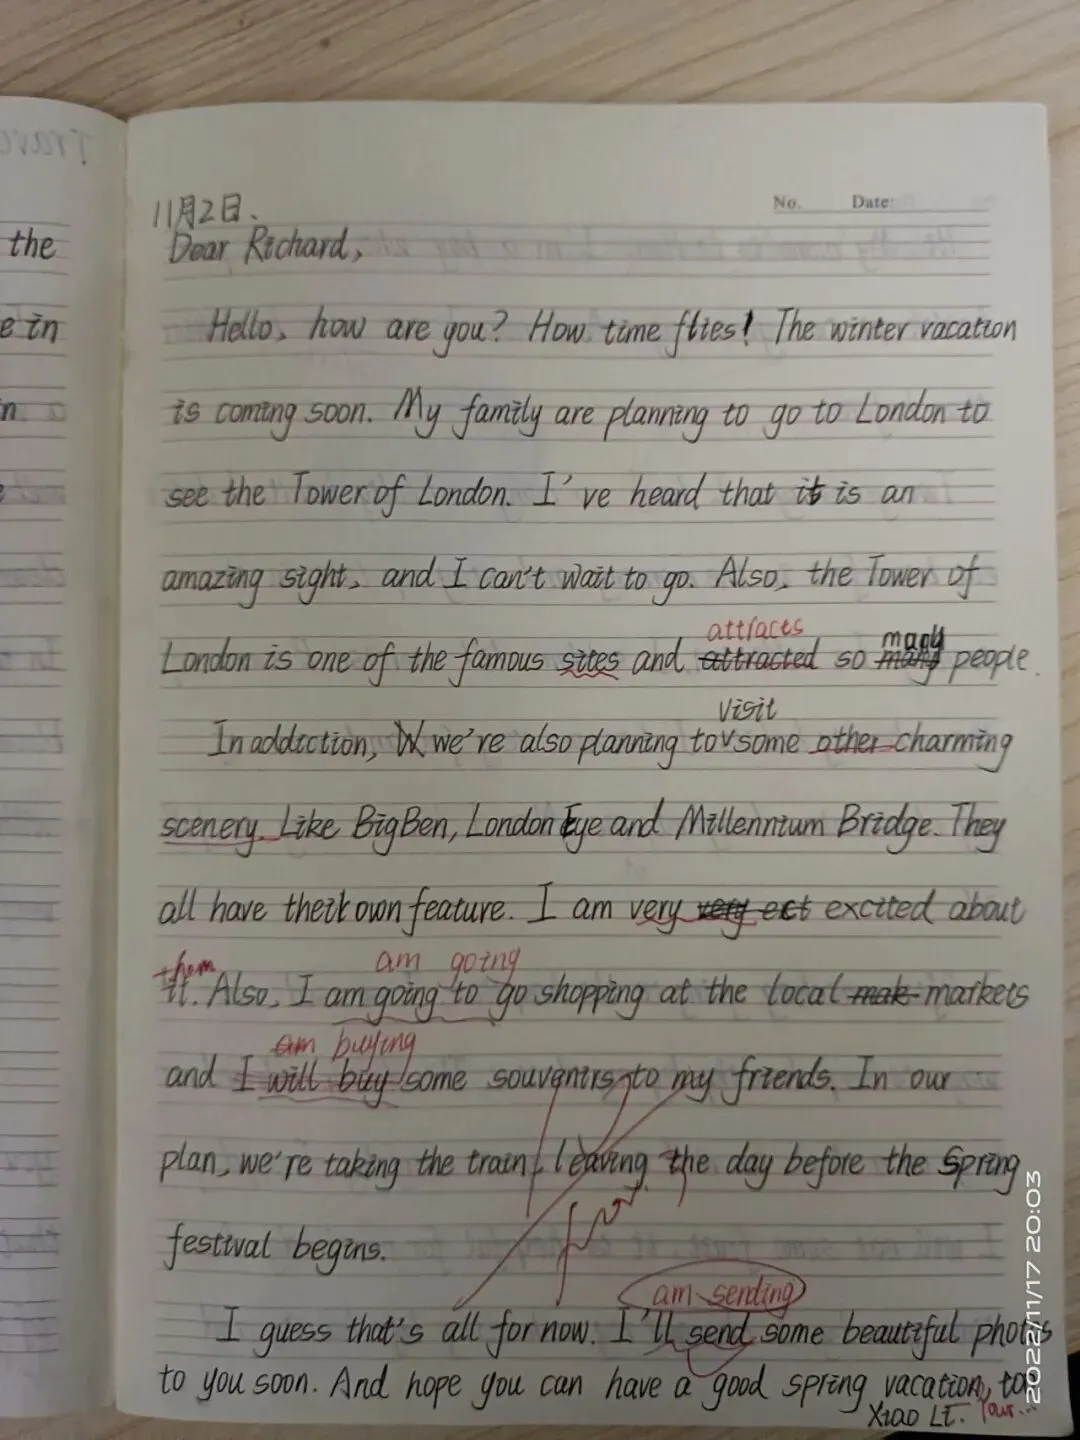 the
e in
n
11月2日.
No. Date:
Dear Richard,
Hello, how are you? How time flies! The winter vacation
is coming soon. My family are planning to go to London to
see the Tower of London. I've heard that it is an
amazing sight, and I can't wait to go. Also, the Tower of
attracts many
London is one of the famous sites and attracted so many people.
visit
In addiction, we're also planning to some other charming
scenery. Like Big Ben, London Eye and Millennium Bridge. They
all have their own feature. I am very very ect excited about
them am going
it. Also, I am going to go shopping at the local mak markets
am buying
and I will buy some souvenirs to my friends. In our
plan, we're taking the train leaving the day before the Spring
festival begins.
am sending
I guess that's all for now. I'll send some beautiful photos
to you soon. And hope you can have a good spring vacation, too
Xiao Li.
2022/11/17 20:03